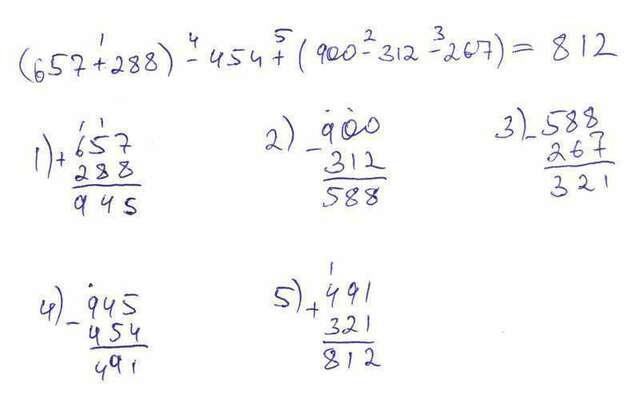 (657 + 288) - 454 + (900 - 312 - 267) = 812
1) + 657
288
945
2) - 900
312
588
3) - 588
267
321
4) - 945
454
491
5) + 491
321
812